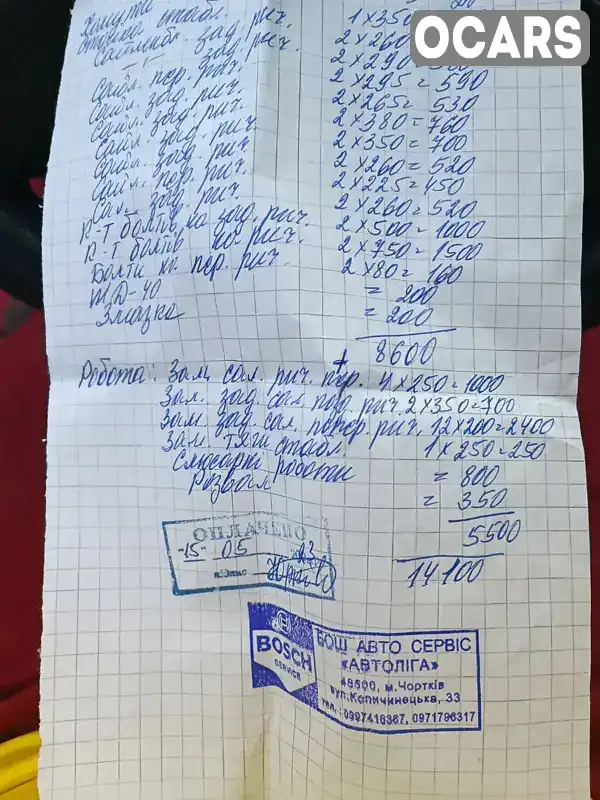 OCARS
Хомути
стойка стабіл. 1×350
Сайлентбл. зад. рич. 2×260
—"— зад. рич. 2×290
Сайл. пер. рич. 2×295 = 590
Сайл. зад. рич. 2×265 = 530
Сайл. зад. рич. 2×380 = 760
Сайл. зад. рич. 2×350 = 700
Сайл. зад. рич. 2×260 = 520
Сайл. пер. рич. 2×225 = 450
Сал. зад. рич. 2×260 = 520
К-т болтів на зад. рич. 2×500 = 1000
К-т болтів на рич. 2×750 = 1500
Болти кр. пер. рич. 2×80 = 160
WD-40 = 200
Змазка = 200
8600
+
Робота: Зам. сал. рич. пер. 4×250 = 1000
Зам. зад. сал. позд. рич. 2×350 = 700
Зам. зад. сал. попер. рич. 12×200 = 2400
Зам. тяги стабл. 1×250 = 250
Слюсарні роботи = 800
Розвал = 350
5500
14100
ОПЛАЧЕНО
-15- 05 23
Підпис
BOSCH
SERVICE
БОШ АВТО СЕРВІС
«АВТОЛІГА»
48500, м.Чортків
вул.Копичинецька, 33
тел.: 0997416367, 0971796317